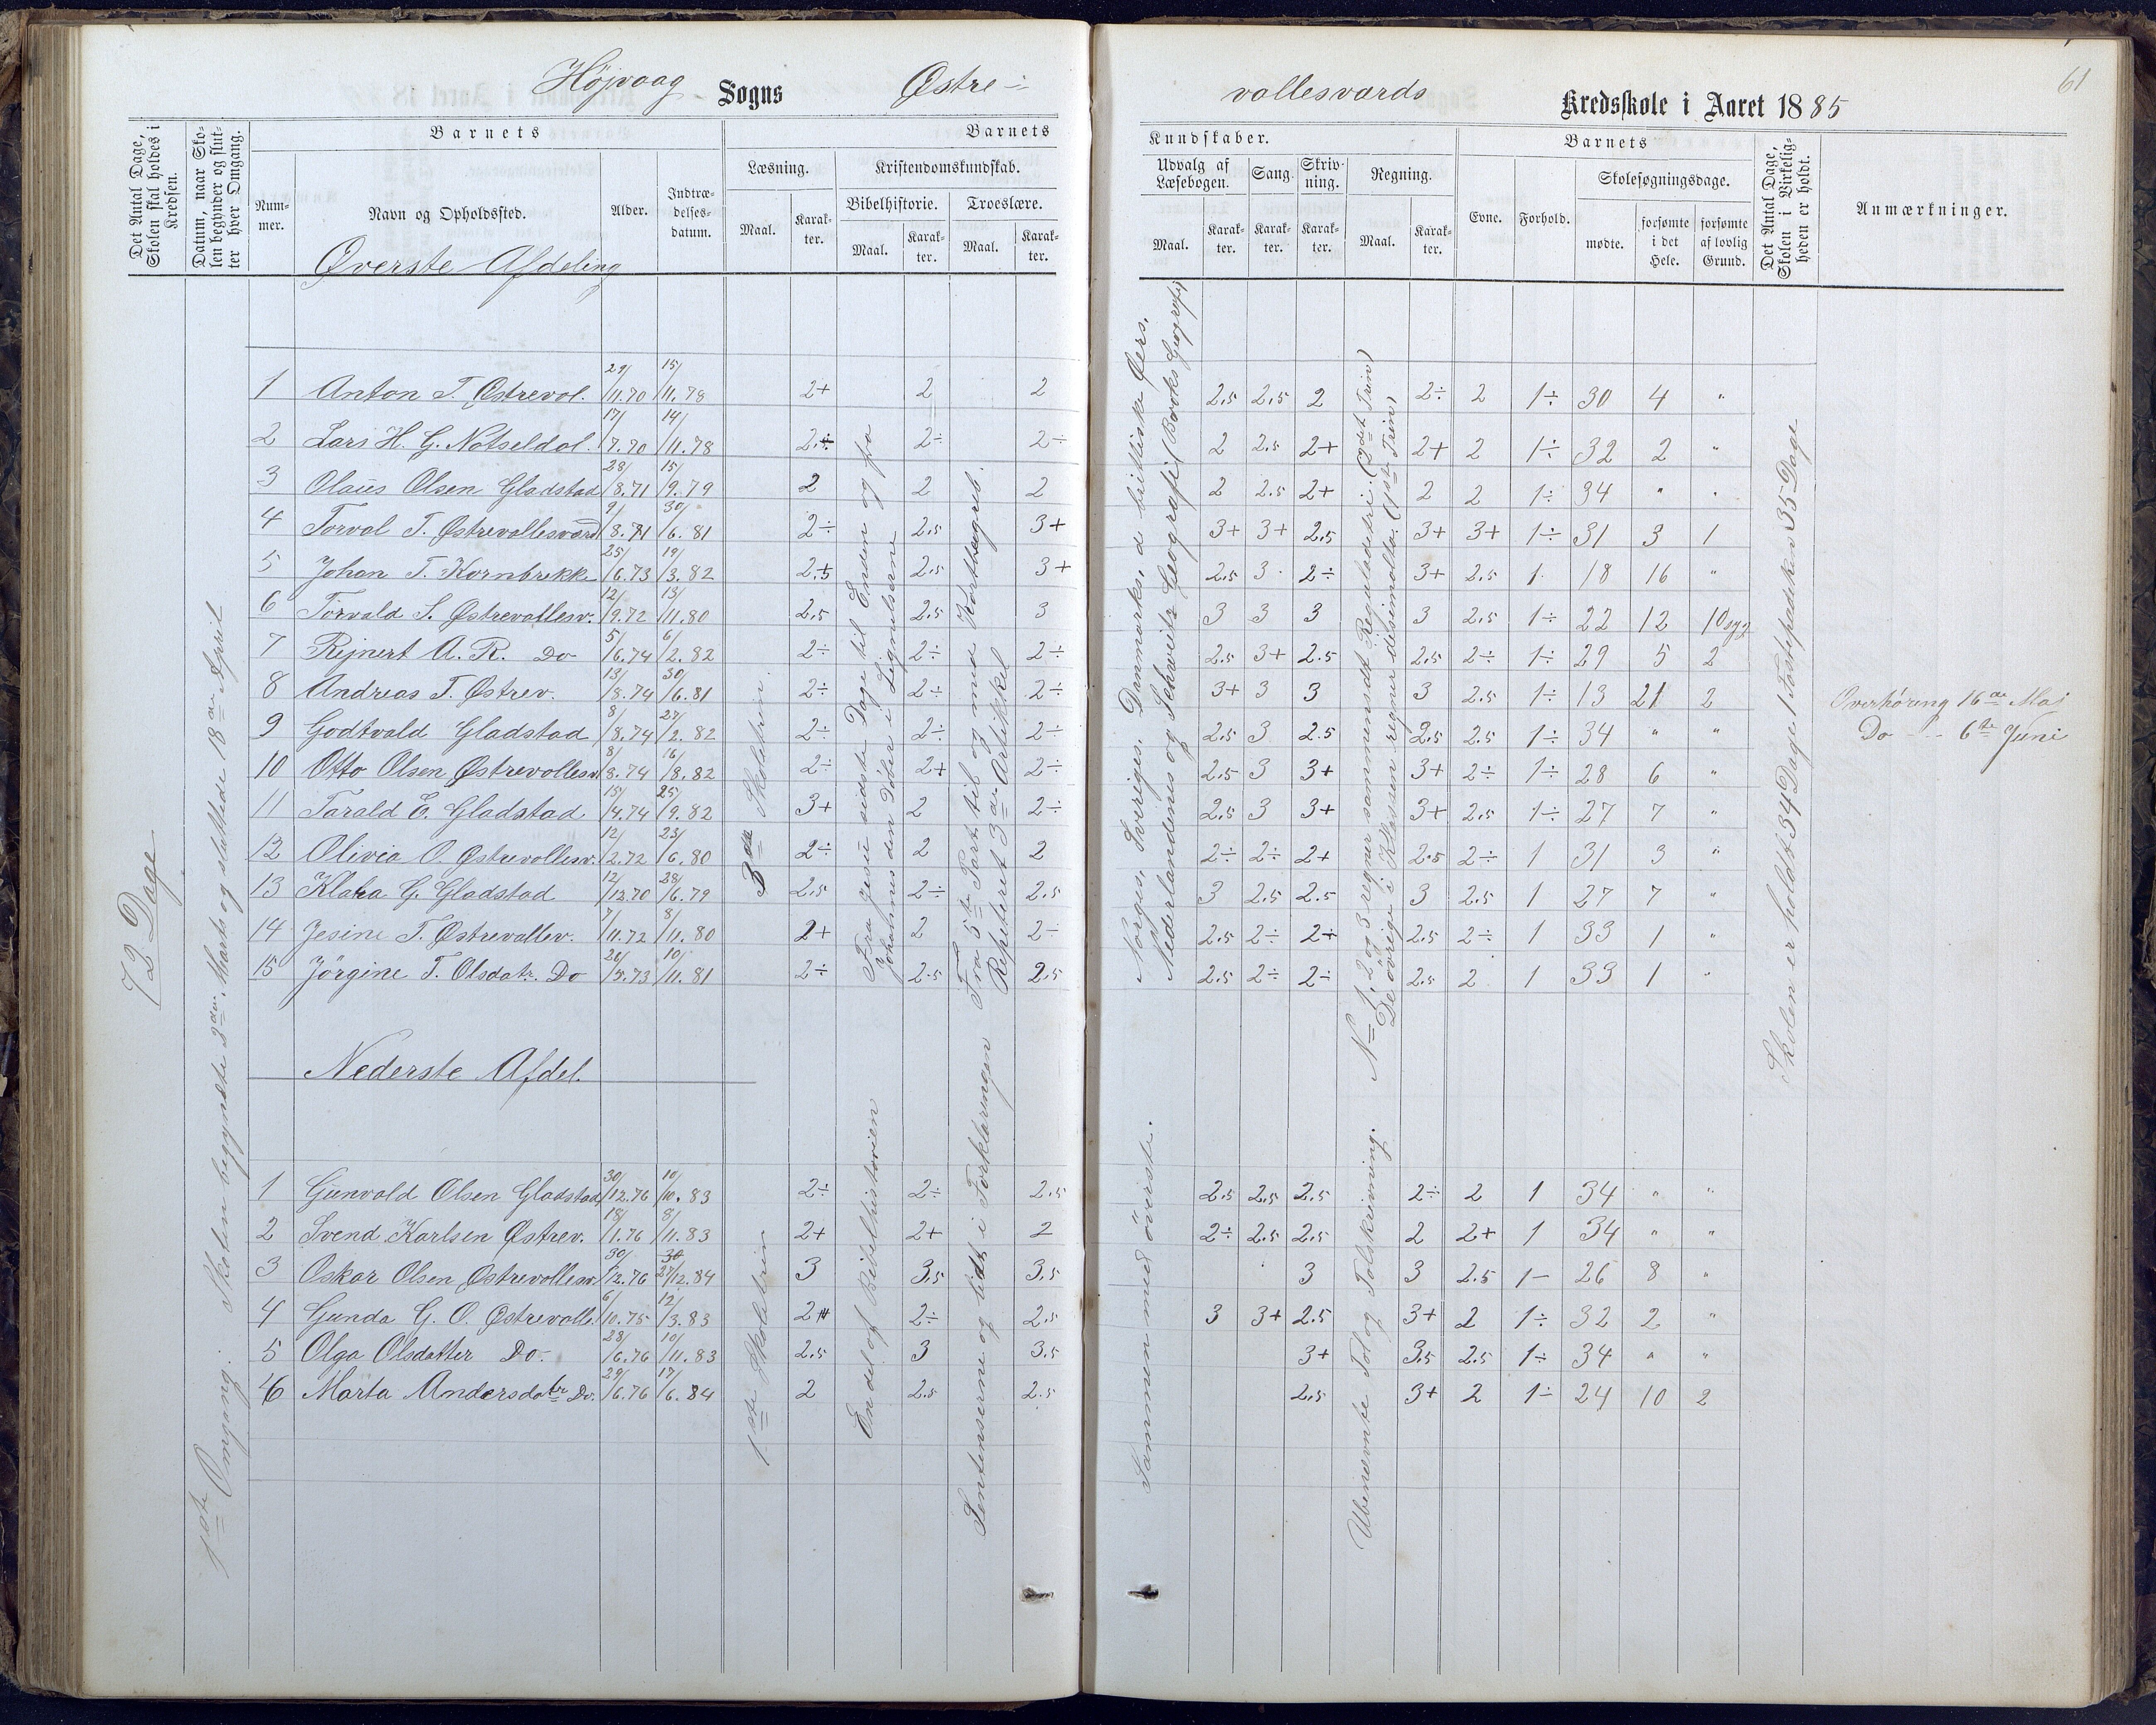 61
Højvaag Sogns Østre-
vallesværds Kredsskole i Aaret 1885
Det Antal Dage, Skolen skal holdes i Kredsen.
Datum, naar Skolen begynder og slutter hver Omgang.
Barnets
Nummer.
Navn og Opholdssted.
Alder.
Indtrædelsesdatum.
Barnets
Læsning.
Maal.
Karakter.
Kristendomskundskab.
Bibelhistorie.
Maal.
Karakter.
Troeslære.
Maal.
Karakter.
Kundskaber.
Udvalg af Læsebogen.
Maal.
Karakter.
Sang.
Karakter.
Skrivning.
Karakter.
Regning.
Maal.
Karakter.
Barnets
Evne.
Forhold.
Skolesøgningsdage.
mødte.
forsømte i det Hele.
forsømte af lovlig Grund.
Det Antal Dage, Skolen i Virkeligheden er holdt.
Anmærkninger.
Øverste Afdeling
1 Anton T. Østrevol. 29/11.70 15/11.78 2+ 2 2 2.5 2.5 2 2÷ 2 1÷ 30 4 "
2 Lars H. G. Natseldal. 17/7.70 14/11.78 2÷ 2÷ 2÷ 2 2.5 2+ 2+ 2 1÷ 32 2 "
3 Olaus Olsen Gladstad 28/8.71 15/9.79 2 2 2 2 2.5 2+ 2 2 1÷ 34 " "
4 Torval T. Østrevallesværd 9/8.71 30/6.81 2÷ 2.5 3+ 3+ 3+ 2.5 3+ 3+ 1÷ 31 3 1
5 Johan T. Kornbrekke 25/6.73 19/3.82 2.5 2.5 3+ 2.5 3 2÷ 3+ 2.5 1 18 16 "
6 Torvald S. Østrevallesv. 12/9.72 13/11.80 2.5 2.5 3 3 3 3 3 2.5 1÷ 22 12 10 syg
7 Rejnert A. R. Do 5/6.74 6/2.82 2÷ 2÷ 2÷ 2.5 3+ 2.5 2.5 2÷ 1÷ 29 5 2
8 Andreas T. Østrev. 13/8.74 30/6.81 2÷ 2÷ 2÷ 3+ 3 3 3 2.5 1÷ 13 21 2
9 Godtvald Gladstad 8/8.74 27/2.82 2÷ 2÷ 2÷ 2.5 3 2.5 2.5 2.5 1÷ 34 " "
10 Otto Olsen Østrevallesv. 8/8.74 16/8.82 2÷ 2+ 2÷ 2.5 3 3+ 3+ 2÷ 1÷ 28 6 "
11 Tarald E. Gladstad 15/4.74 25/9.82 3+ 2 2÷ 2.5 3 3+ 3+ 2.5 1÷ 27 7 "
12 Olivia O. Østrevollesv. 12/2.72 23/6.80 2÷ 2 2 2÷ 2÷ 2+ 2.5 2÷ 1 31 3 "
13 Klara G. Gladstad 12/12.70 28/6.79 2.5 2÷ 2.5 3 2.5 2.5 3 2.5 1 27 7 "
14 Jesine T. Østrevallev. 7/11.72 8/11.80 2+ 2 2÷ 2.5 2÷ 2+ 2.5 2÷ 1 33 1 "
15 Jörgine T. Olsdatr. Do 26/5.73 10/11.81 2÷ 2.5 2.5 2.5 2÷ 2÷ 2.5 2 1 33 1 "
72 Dage
1ste Omgang: Skolen begyndte 2den Marts og sluttede 18de April
3die Skoletrin.
Fra Jesu sidste Dage til Enden og fra
Johannes den Døber i Lignelserne
Fra 5te Part til og med Kortbegreb.
Repeteret 3die Artikkel
Norges, Sveriges, Danmarks, d brittiske Øers,
Nederlandenes og Schveitz Geografi (Bocks Geografi)
No 1, 2 og 3 regner sammensat Reguladetri. (2det Trin)
De øvrige i Klassen regner desimaltal. (1ste Trin)
Skolen er holdt 34 Dage 1 Fastepræken 35 Dage
Overhøring 16de Maj
Do - - - 6te Juni
Nederste Afdel.
1 Gunvald Olsen Gladstad 30/12.76 10/10.83 2÷ 2÷ 2.5 2.5 2.5 2.5 2÷ 2 1 34 " "
2 Svend Karlsen Østrev. 18/1.76 8/11.83 2+ 2+ 2 2÷ 2.5 2.5 2 2+ 1 34 " "
3 Oskar Olsen Østrevollesv. 30/12.76 27/12.84 3 3.5 3.5 3 3 2.5 1- 26 8 "
4 Gunda G. O. Østrevalle. 6/10.75 12/3.83 2+ 2÷ 2.5 3 3+ 2.5 3+ 2 1÷ 32 2 "
5 Olga Olsdatter Do. 28/6.76 10/11.83 2.5 3 3.5 3+ 3.5 2.5 1÷ 34 " "
6 Marta Andersdatr Do. 29/6.76 17/6.84 2 2.5 2.5 2.5 3+ 2 1÷ 24 10 2
1ste Skoletrin
En del af Bibelhistorien
Sentenserne og lidt i Forklaringen
Sammen med överste.
Ubenævnte Tal og Talskrivning.